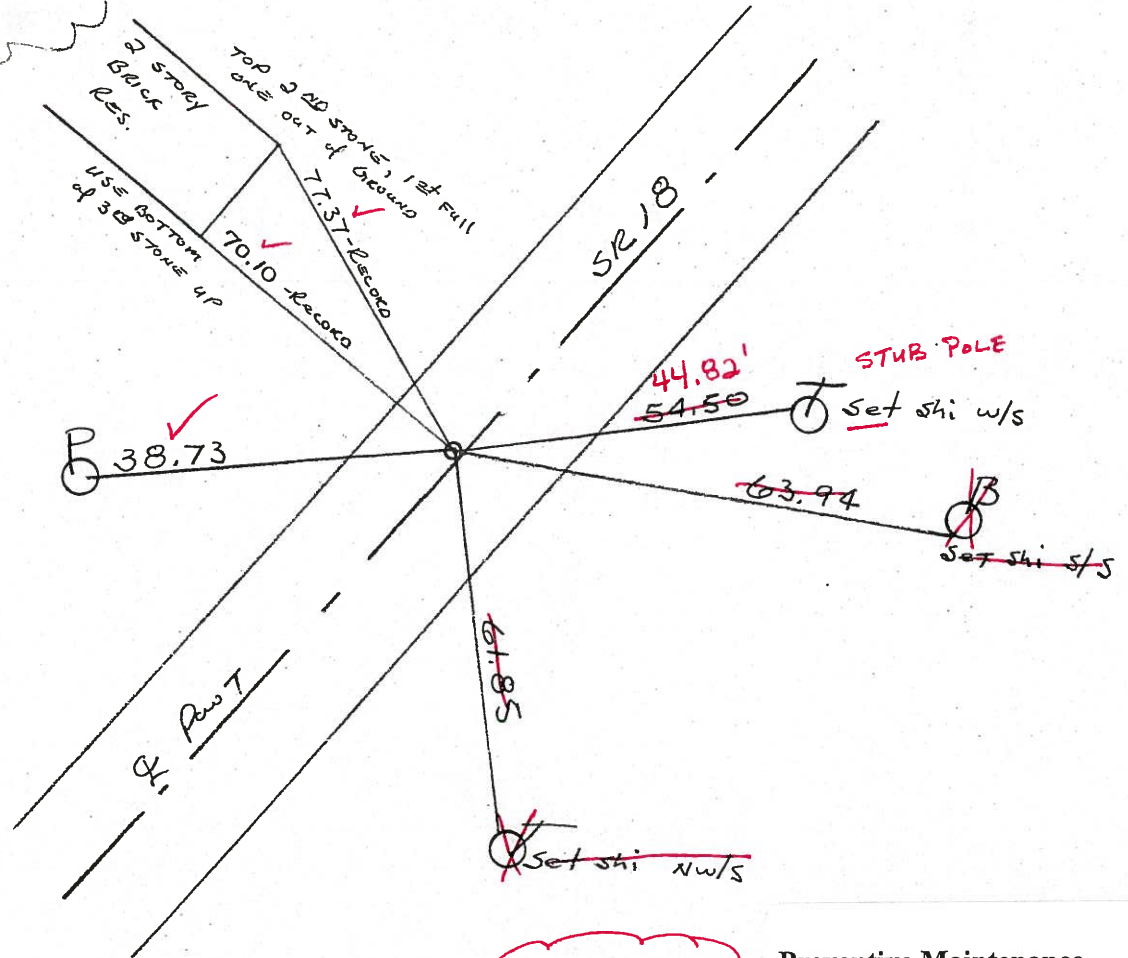 2 STORY
BRICK
RES.
TOP 2ND STONE, 1st FULL
ONE OUT of GROUND
USE BOTTOM
of 3RD STONE UP
77.37-RECORD
70.10-RECORD
SR 18
44.82'
54.50
STUB POLE
T
Set shi w/s
P
38.73
63.94
B
Set shi s/s
61.85
℄ PVMT
T
Set shi NW/S
Preventive Maintenance